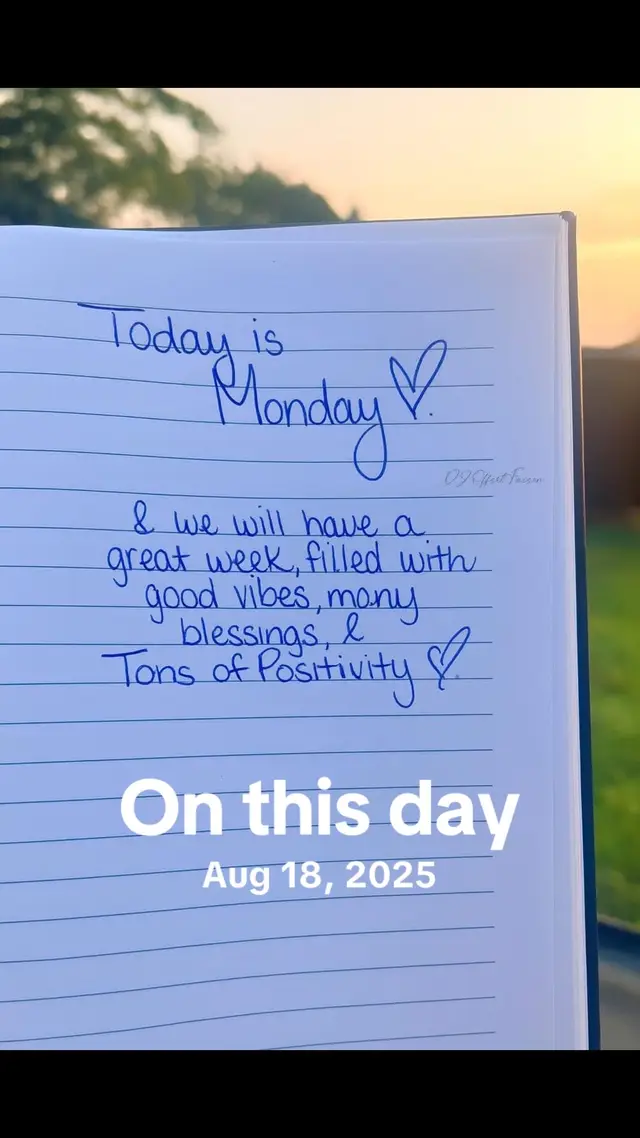 Today is
Monday
& we will have a
great week, filled with
good vibes, many
blessings, &
Tons of Positivity
On this day
Aug 18, 2025